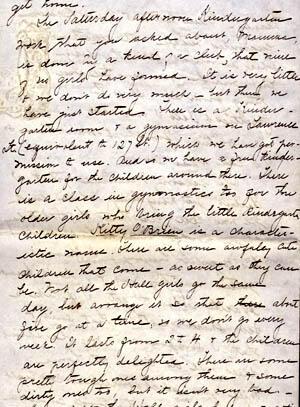 get home.
The Saturday afternoon Kindergarten
work that you asked about, Mamma,
is done by a kind of a club that nine
of us girls have formed. It is very little
& we don't do very much - but then we
have just started. There is a Kinder-
garten room & a gymnasium on Lawrence
St. (equivalent to 127 St.) which we have got per-
mission to use. And so we have a free Kinder-
garten for the children around there. There
is a class in gymnastics too for the
older girls who bring the little Kindergarten
children. Kitty O'Brien is a character-
istic name. There are some awfully cute
children that come - as sweet as they can
be. Not all the Hall girls go the same
day, but arrange it so that about
five go at a time, so we don't go every
week. It lasts from 2 to 4 & the children
are perfectly delighted. There are some
pretty tough ones among them & some
dirty ones too, but it isn't very bad -